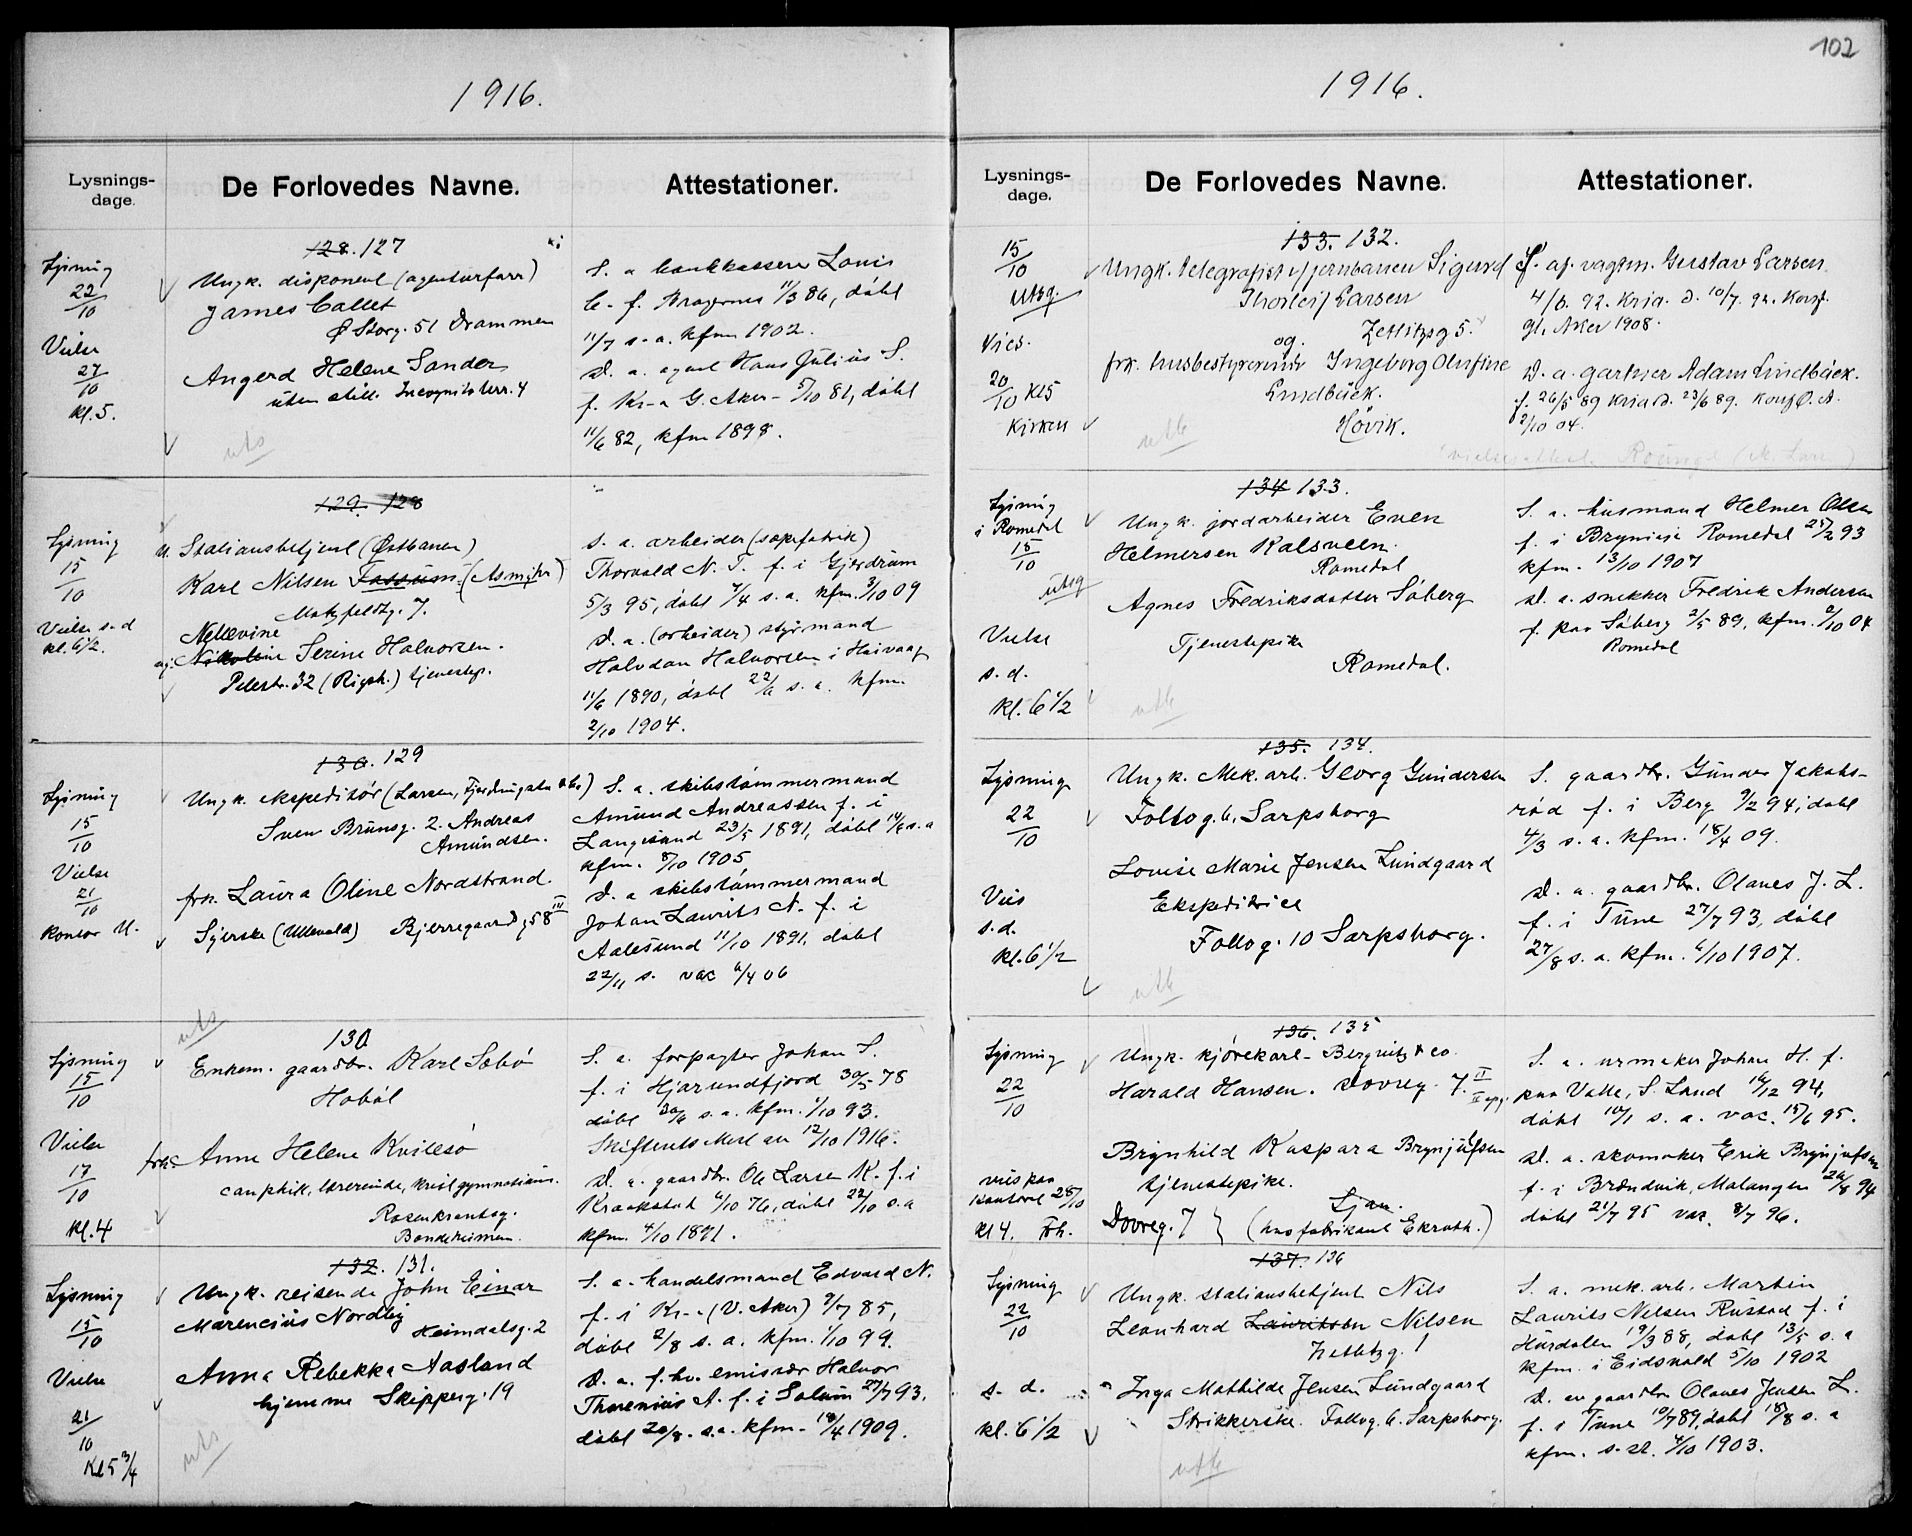 1916.
Lysnings-
dage.
De Forlovedes Navne.
Attestationer.
128. 127
Lysning
22/10
Vielse
27/10
kl. 5.
Ungk. disponent (agenturforr)
James Callet
Ø Storg. 51 Drammen
Angerd Helene Sander
uten still. Incognitoterr. 4
S. a bankkasserer Louis
C. f. Bragernes 11/3 86, døbt
11/7 s. a. kfm 1902.
D. a. agent Hans Julius S.
f. Kr-a G. Aker - 5/10 81, døbt
11/6 82, kfm 1898.
129. 128
Lysning
15/10
Vielse s. d
kl. 6 1/2.
U. Stationsbetjent (Østbanen)
Karl Nilsen Fossum (Asmyhr)
Motzfeldtsg. 7.
Nellevine
og Nikoline Serine Halvorsen.
Pilestr. 32 (Rigsh.) tjenestep.
S. a. arbeider (sæpefabrik)
Thorvald N. F. f. i Gjerdrum
5/3 95, døbt 7/4 s. a. kfm. 3/10 09
D. a. (arbeider) styrmand
Halvdan Halvorsen i Høivaag
11/6 1890, døbt 22/6 s. a. kfm.
2/10 1904.
130. 129
Lysning
15/10
Vielse
21/10
kontor U.
Ungk. ekspeditør (Larsen, Fjerdingstad & Co)
Sven Brunsg. 2. Andreas
Amundsen.
frk. Laura Oline Nordstrand
Syerske (Ullevold) Bjerregaardsg 58 III
S. a. skibstømmermand
Amund Andreassen f. i
Langesund 23/5 1891, døbt 14/6 s. a
kfm. 8/10 1905
D. a skibstømmermand
Johan Laurits N. f. i
Aalesund 11/10 1891, døbt
22/11 s. vac 6/4 06
130
Lysning
15/10
Vielse
17/10
kl. 4
Enkem. gaardbr. Karl Sebø
Hobøl
frk. Anne Helene Kvilesø
Rosenkrantsg.
Bondeheimen.
S. a. forpagter Johan S.
f. i Hjørundfjord 30/5 78
døbt 30/6 s. a. kfm. 1/10 93.
Skifterets Attest av 12/10 1916.
D. a. gaardbr. Ole Larsen K. f. i
Kraakstad 6/10 76, døbt 22/10 s. a
kfm. 4/10 1891.
132. 131.
Lysning
15/10
Vielse
21/10
Kl 5 3/4
Ungk. reisende John Einar
Marencius Nordby
Heimdalsg. 2
Anna Rebekka Aasland
hjemme Skipperg. 19
S. a. handelsmand Edvard N.
f. i Kr-a (V. Aker) 9/7 85,
døbt 2/8 s. a. kfm. 1/10 99.
D. a. f. hv. emissær Halvor
Thorenius A. f. i Solum 27/7 93.
døbt 20/8. s. a. kfm. 18/4 1909.
102
1916.
Lysnings-
dage.
De Forlovedes Navne.
Attestationer.
133. 132.
15/10
Utsg.
Vies.
20/10 kl 5
Kirken
Ungk. telegrafist v/jernbanen Sigurd
Thorleif Larsen
Zetlitzsg 5.
og
frk. husbestyrerinde Ingeborg Olufine
Lindbäck.
Høvik.
S. af vagtm. Gustav Larsen
4/6. 92. Kria. d. 10/7. 92. Konf.
gl. Aker 1908.
D. a. gartner Adam Lindbäck.
f. 26/5 89 Kria d. 23/6 89. Konf Ø. A.
2/10 04.
134 133.
Lysning
i Romedal
15/10
utsg
Vielse
s. d.
kl. 6 1/2
Ungk. jordarbeider Even
Helmersen Kalsveen
Romedal
Agnes Fredriksdatter Søberg
Tjenestepike
Romedal.
S. a. husmand Helmer Olsen
f. i Romedal 25/2 93
kfm. 13/10 1907
D. a. snekker Fredrik Andersen
f. paa Søberg 2/5 89, kfm. 2/10 04
Romedal
135. 134.
Lysning
22/10
Vies
s. d.
kl. 6 1/2
Ungk. Mek. arb. Georg Gundersen
Follog. 6, Sarpsborg
Louise Marie Jensen Lundgaard
Ekspeditrice
Follog. 10 Sarpsborg.
S. gaardbr. Gunder Jakobs-
rød f. i Berg 9/2 94, døbt
4/3 s. a. kfm. 18/4 09.
D. a. gaardbr. Olaves J. L.
f. i Tune 27/7 93, døbt
27/8 s. a. kfm. 6/10 1907.
136. 135
Lysning
22/10
vies paa
Kontoret 28/10
kl 4. Fh.
Ungk. kjørekarl - Bergwitz & co.
Harald Hansen. Dovreg. 7. II
II opg.
Brynhild Kaspara Brynjulfsen
tjenestepike.
Ljan.
Dovreg. 7 } (hos fabrikant Ekroth.)
S. a. urmaker Johan H. f.
paa Valle, S. Land 16/12 94,
døbt 10/1 s. a. vac. 15/6 95.
D. a. skomaker Erik Brynjulfsen
f. i Brændvik, Malangen 26/8 94
døbt 21/7 95 vac. 8/7 96.
137. 136
Lysning
22/10
s. d.
kl. 6 1/2
Ungk. stationsbetjent Nils
Leonhard Lauritsen Nilsen
Zetlitzg. 1
Inga Mathilde Jensen Lundgaard
Strikkerske. Follog. 6. Sarpsborg.
S. a. mek. arb. Martin
Laurits Nilsen Rustad f. i
Hurdalen 19/3 88, døbt 13/5 s. a
kfm. i Eidsvold 5/10 1902
D. av gaardbr Olaves Jensen L.
f. i Tune 10/7 89, døbt 18/8 s. a
kfm. s. st. 4/10 1903.